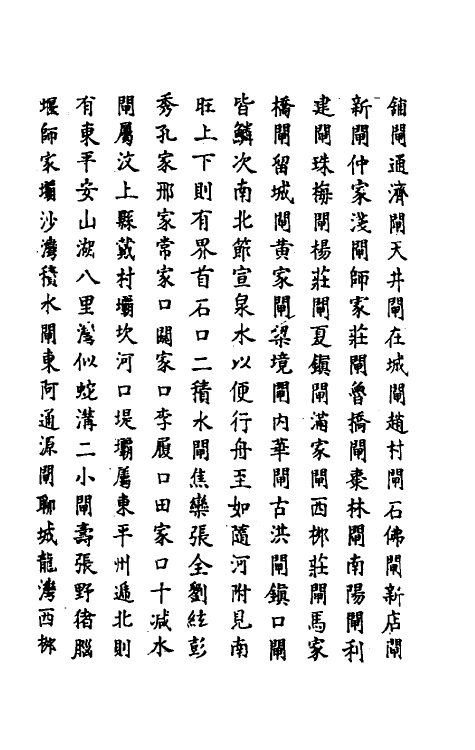 舖閘通濟閘天井閘在城閘趙村閘石佛閘新店閘
新閘仲家淺閘師家莊閘魯橋閘棗林閘南陽閘利
建閘珠梅閘楊莊閘夏鎮閘滿家閘西栁莊閘馬家
橋閘留城閘黃家閘梁境閘內華閘古洪閘鎮口閘
皆鱗次南北節宣泉水以便行舟至如隨河附見南
旺上下則有界首石口二積水閘焦欒張全劉絃彭
秀孔家邢家常家口闗家口李履口田家口十減水
閘屬汶上縣戴村壩坎河口堤壩屬東平州遞北則
有東平安山湖八里灣似蛇溝二小閘壽張野猪腦
堰師家壩沙灣積水閘東阿通源閘聊城龍灣西栁